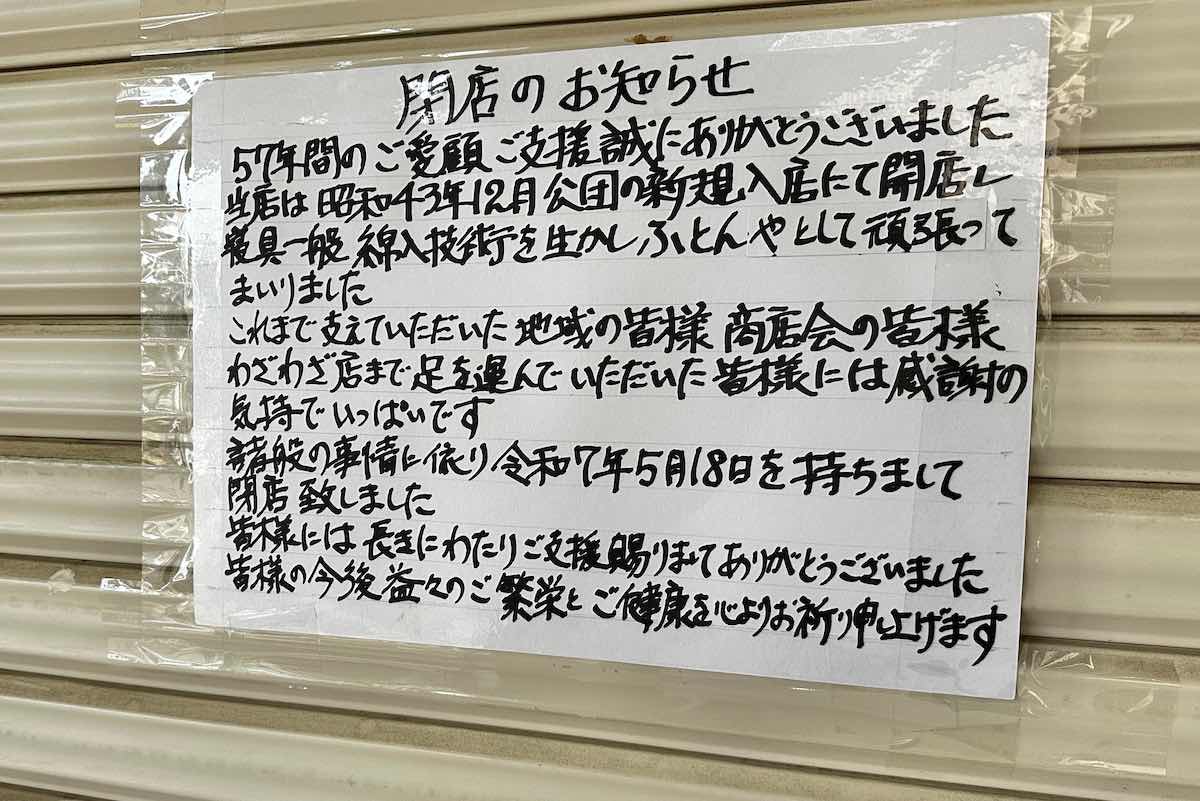 閉店のお知らせ
57年間のご愛顧ご支援誠にありがとうございました
当店は昭和43年12月公団の新規入店にて開店し
寝具一般 綿入技術を生かしふとんやとして頑張って
まいりました
これまで支えていただいた地域の皆様 商店会の皆様
わざわざ店まで足を運んでいただいた皆様には感謝の
気持でいっぱいです
諸般の事情に依り令和7年5月18日を持ちまして
閉店致しました
皆様には長きにわたりご支援賜りましてありがとうございました
皆様の今後益々のご繁栄とご健康を心よりお祈り申し上げます